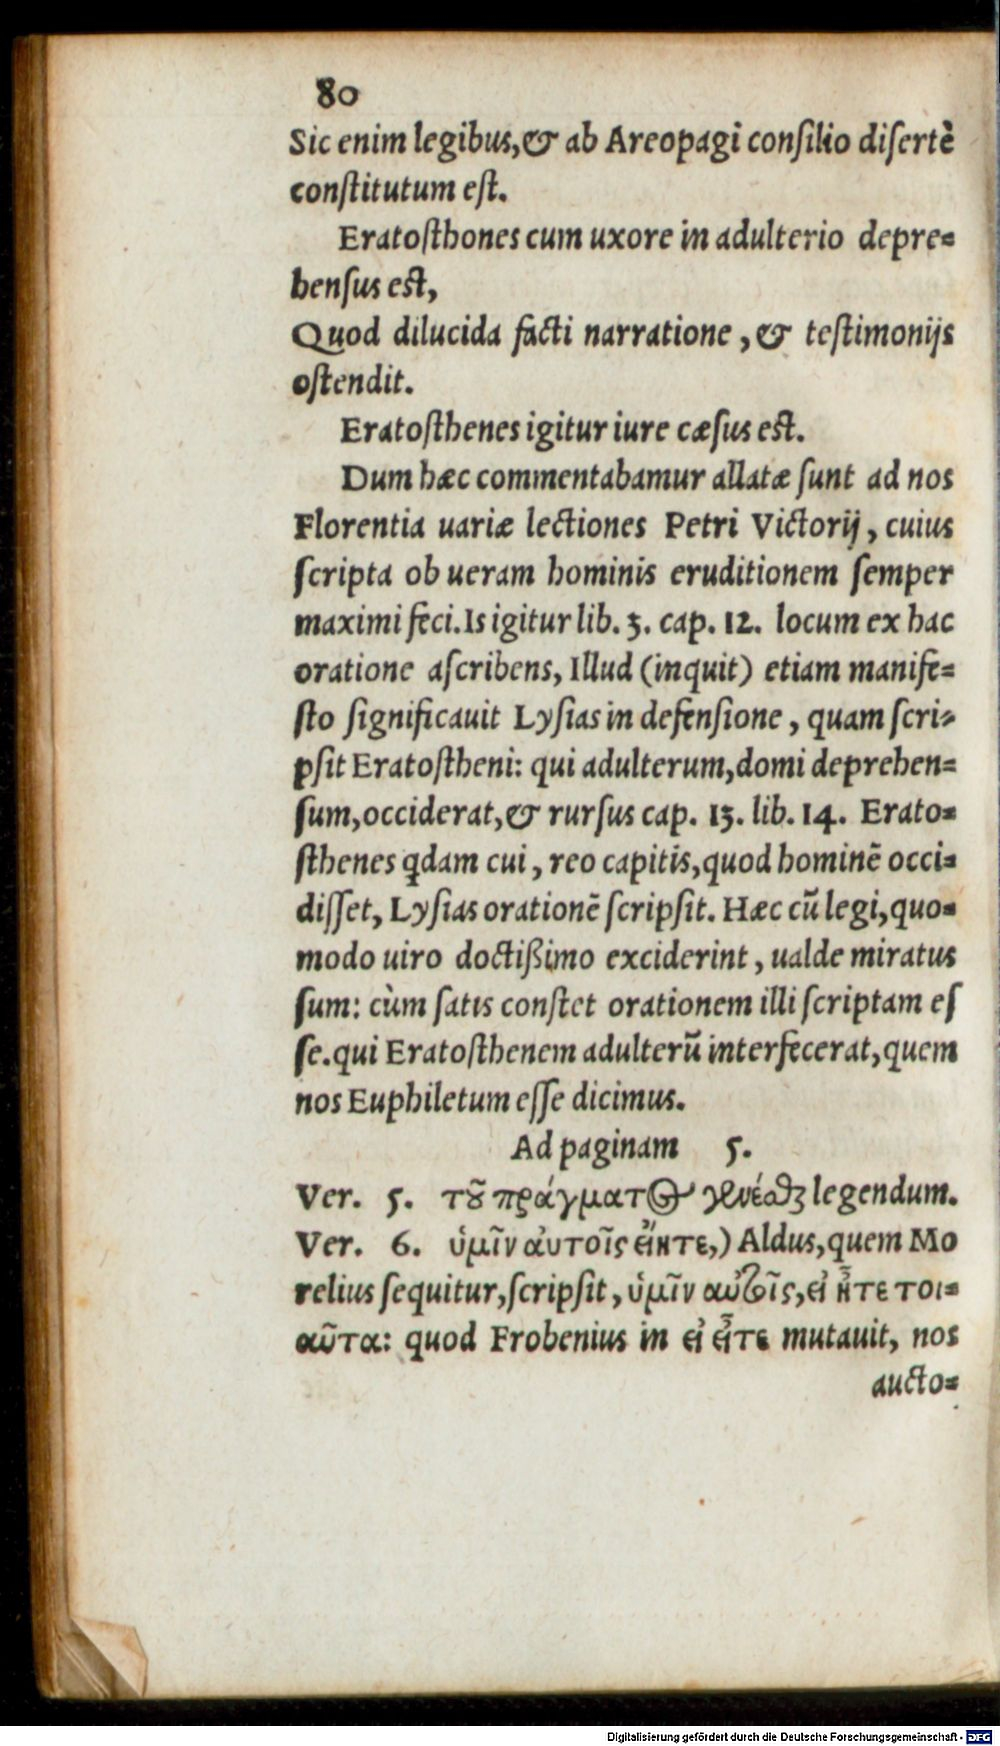 80
Sic enim legibus,& ab Areopagi consilio disertè
constitutum est.
Eratosthones cum uxore in adulterio depre=
hensus est,
Quod dilucida facti narratione , & testimonijs
ostendit.
Eratosthenes igitur iure cæsus est.
Dum hæc commentabamur allatæ sunt ad nos
Florentia uariæ lectiones Petri Victorij , cuius
scripta ob ueram hominis eruditionem semper
maximi feci.Is igitur lib. 3. cap. 12. locum ex hac
oratione ascribens, Illud (inquit) etiam manife=
sto significauit Lysias in defensione , quam scri=
psit Eratostheni: qui adulterum,domi deprehen=
sum,occiderat,& rursus cap. 13. lib. 14. Erato=
sthenes qdam cui , reo capitis,quod hominē occi=
disset, Lysias orationē scripsit. Hæc cū legi,quo=
modo uiro doctißimo exciderint , ualde miratus
sum: cùm satis constet orationem illi scriptam es
se.qui Eratosthenem adulterū interfecerat,quem
nos Euphiletum esse dicimus.
Ad paginam 5.
Ver. 5. τοῦ πράγματος γενέσθαι legendum.
Ver. 6. ὑμῖν αὐτοῖς εἴητε,) Aldus,quem Mo
relius sequitur,scripsit , ὑμῖν αὐτοῖς,εἰ ἦτε τοι=
αῦτα: quod Frobenius in εἰ εἶτε mutauit, nos
aucto=
Digitalisierung gefördert durch die Deutsche Forschungsgemeinschaft - DFG